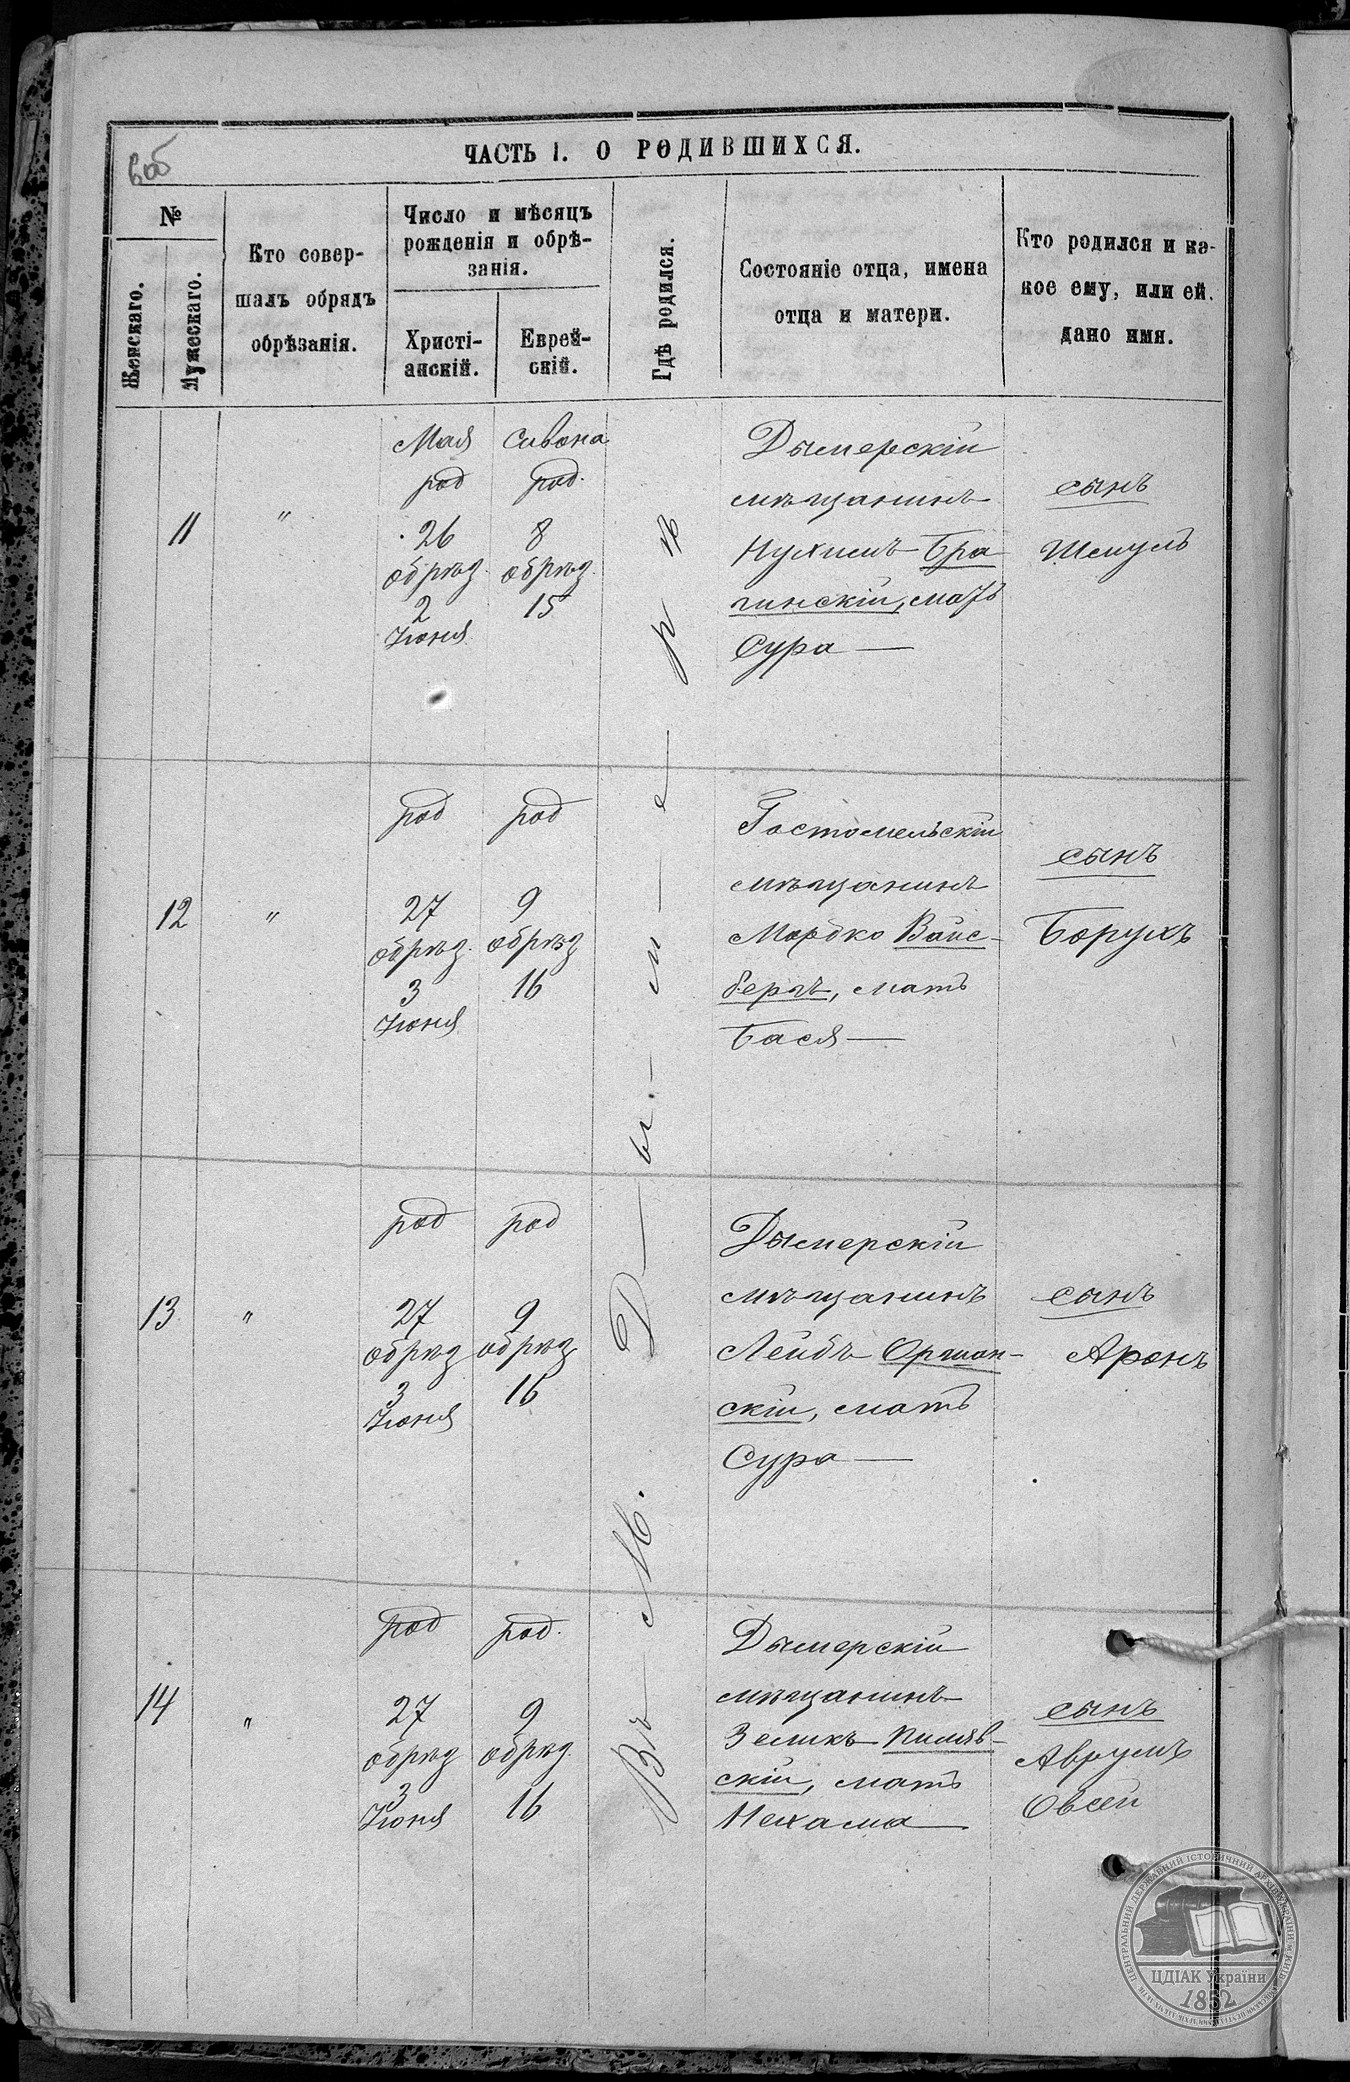 ЧАСТЬ I. О РОДИВШИХСЯ.
№
Женскаго.
Мужескаго.
Кто совер-
шалъ обрядъ
обрѣзанія.
Число и мѣсяцъ
рожденія и обрѣ-
занія.
Христі-
анскій.
Еврей-
скій.
Гдѣ родился.
Состояніе отца, имена
отца и матери.
Кто родился и ка-
кое ему, или ей.
дано имя.
Въ М. Дымерѣ
11
"
Мая
род
26
обрѣз.
2
Іюня
Сивона
род.
8
обрѣз.
15
Дымерскій
мѣщанинъ
Нухимъ Бра
гинскій, мать
Сура —
сынъ
Шмуль
12
"
род
27
обрѣз.
3
Іюня
род
9
обрѣз
16
Гостомельскій
мѣщанинъ
Мордко Вайс-
бергъ, мать
Бася —
сынъ
Борухъ
13
"
род
27
обрѣз
3
Іюня
род
9
обрѣз
16
Дымерскій
мѣщанинъ
Лейбъ Оршан-
скій, мать
Сура —
сынъ
Аронъ
14
"
род
27
обрѣз
3
Іюня
род.
9
обрѣз.
16
Дымерскій
мѣщанинъ
Зеликъ Пиляв-
скій, мать
Нехама —
сынъ
Аврумъ
Овсей
ЦЕНТРАЛЬНИЙ ДЕРЖАВНИЙ ІСТОРИЧНИЙ АРХІВ УКРАЇНИ, М. КИЇВ
ЦДІАК України
1852